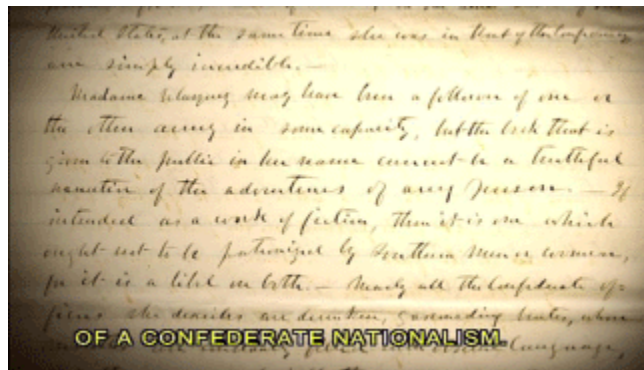 United States, at the same time she was in that of the Confederacy
are simply incredible. —
Madame Velazquez may have been a follower of one or
the other army in some capacity, but the book that is
given to the public in her name cannot be a truthful
narrative of the adventures of any person. — If
intended as a work of fiction, then it is one which
ought not to be patronized by Southern men or women,
for it is a libel on both. — Nearly all the Confederate of=
ficers she describes are drunken, brutes, whose
are language,
OF A CONFEDERATE NATIONALISM.